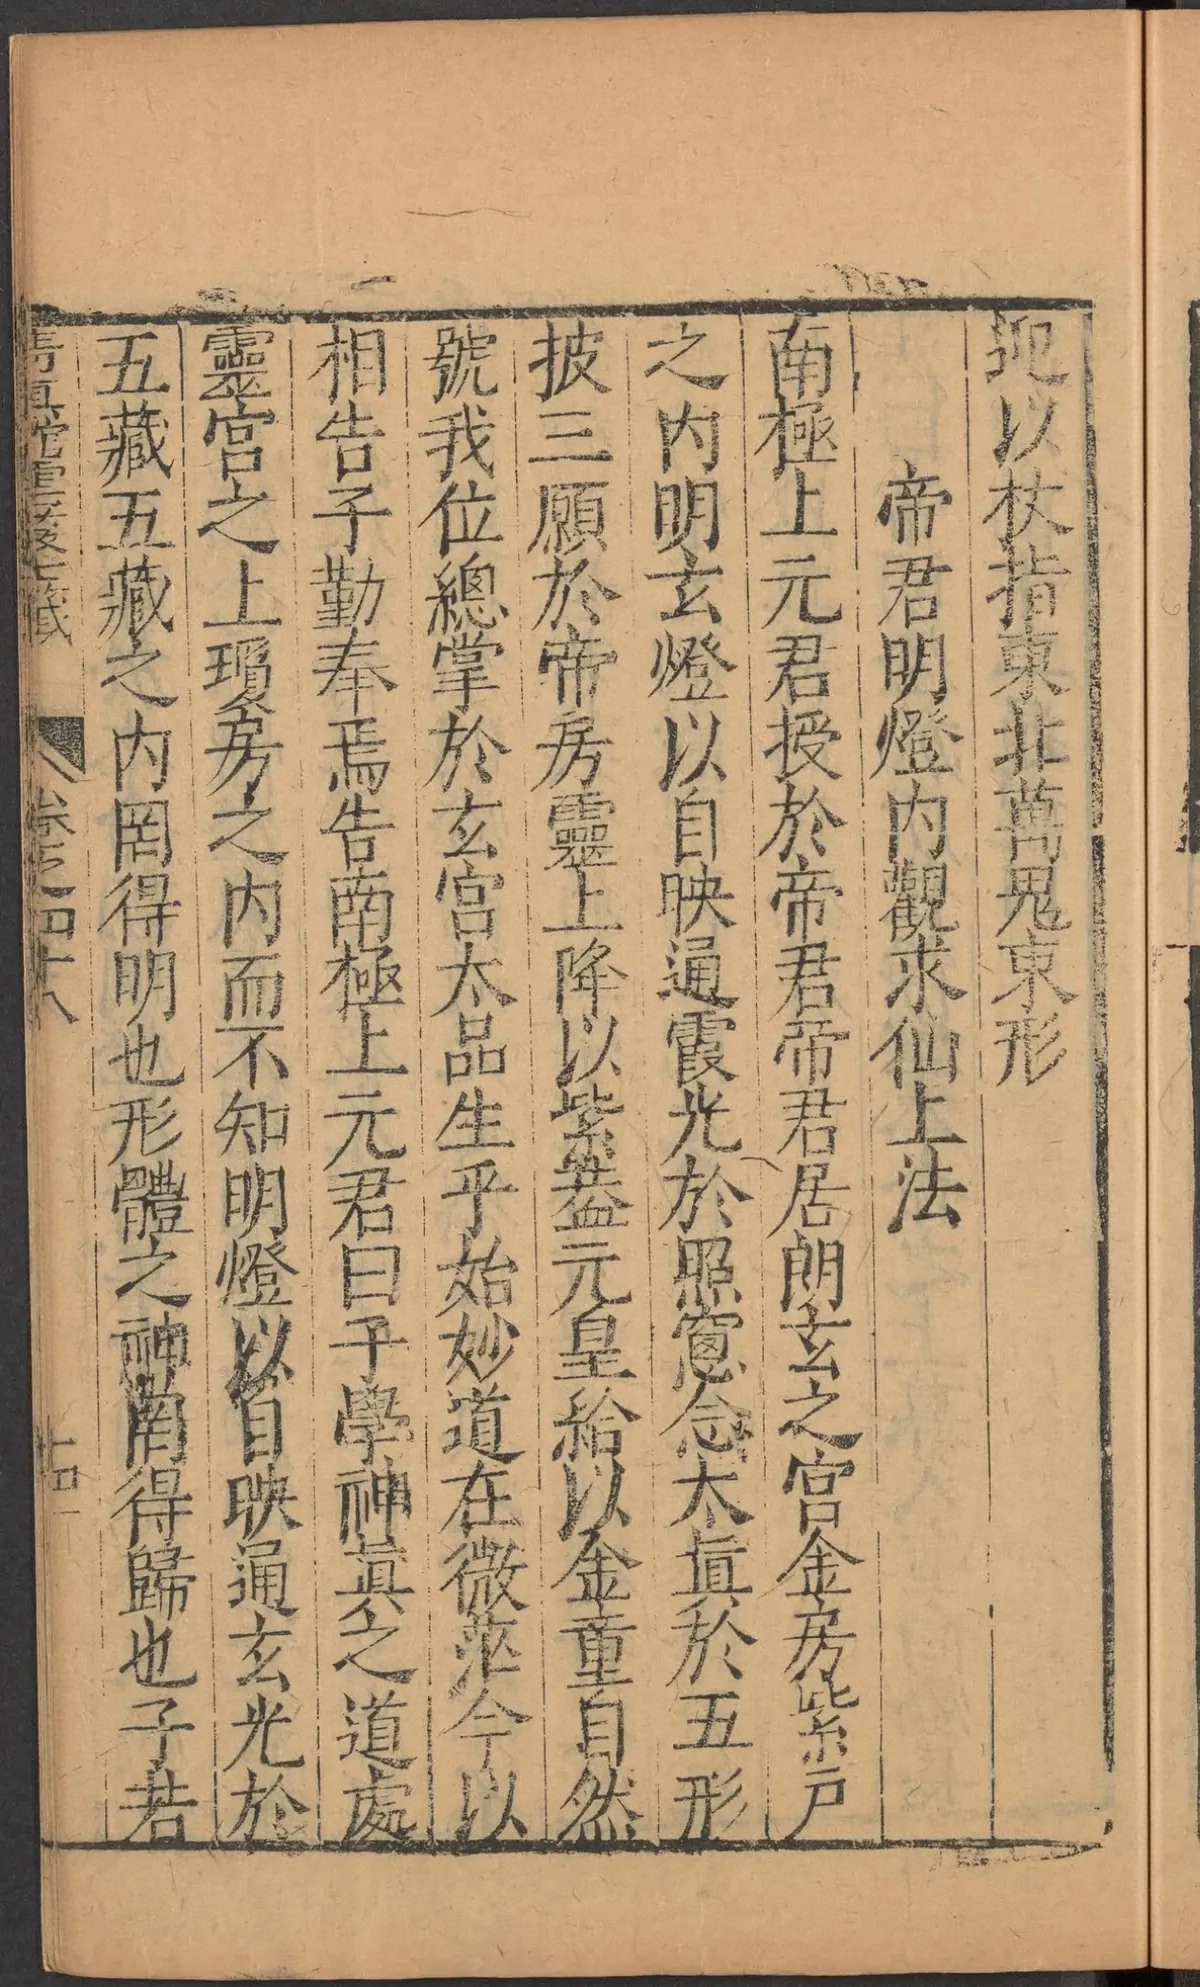 迎以杖指東北萬鬼束形
帝君明燈内觀求仙上法
南極上元君授於帝君帝君居朗玄之宮金房紫戸
之内明玄燈以自映通霞光於照窻念太眞於五形
披三願於帝房靈上降以紫葢元皇給以金童自然
號我位總掌於玄宮太品生乎始妙道在微茫今以
相告子勤奉焉告南極上元君曰子學神眞之道處
靈宮之上瓊房之内而不知明燈以自映通玄光於
五藏五藏之内罔得明也形體之神罔得歸也子若
卷之四十八
十四